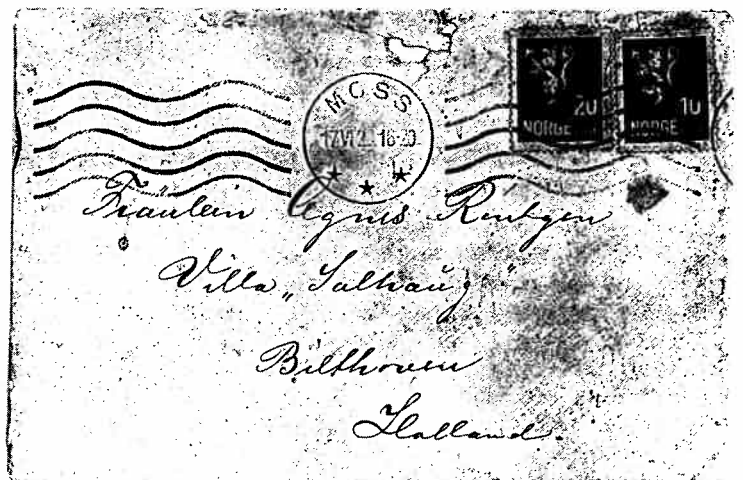 MOSS
20 10
NORGE NORGE
Fräulein Agnes Röntgen
Villa „Solhaug"
Bilthoven
Holland.